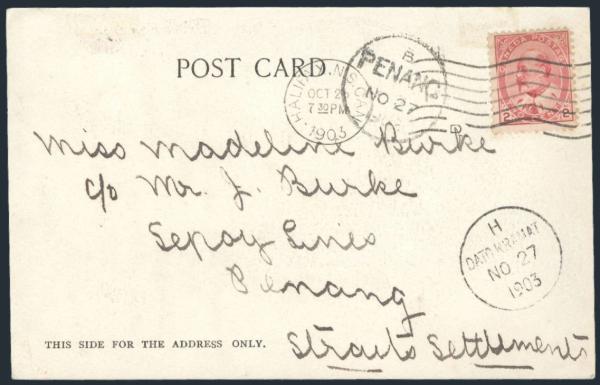 POST CARD.
HALIFAX, N.S. CAN.
OCT 2
7 30 PM
1903
B
PENANG
NO 27
CANADA POSTAGE
2 2
D
Miss Madeline Burke
c/o Mr. J. Burke
Sepoy Lines
Penang
Straits Settlements
H
DATO KRAMAT
NO 27
1903
THIS SIDE FOR THE ADDRESS ONLY.